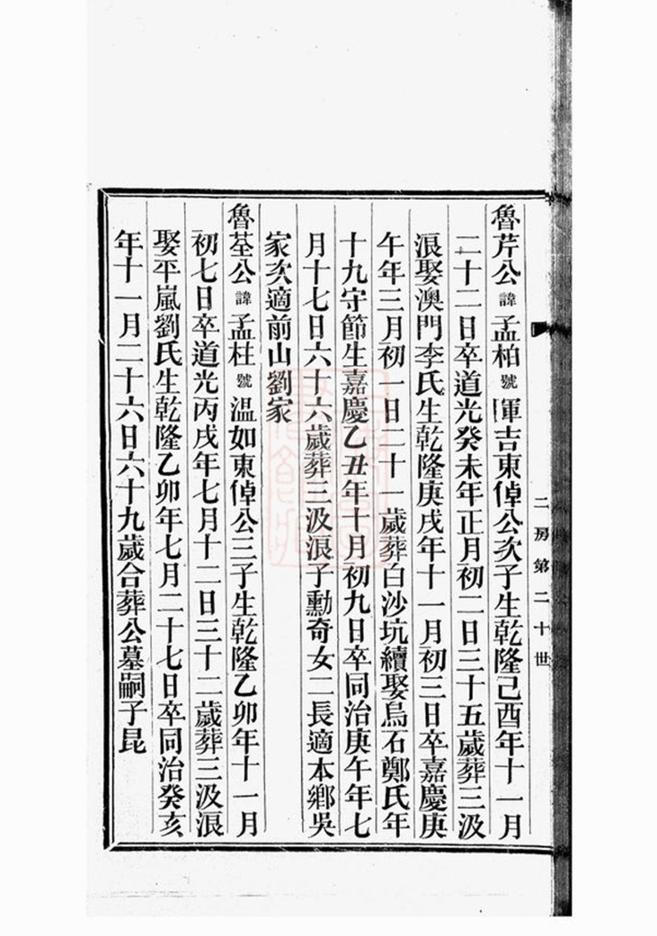 魯芹公諱孟柏號渾吉東倬公次子生乾隆己酉年十一月
二十二日卒道光癸未年正月初二日三十五歲葬三汲
浪娶澳門李氏生乾隆庚戌年十一月初三日卒嘉慶庚
午年三月初一日二十一歲葬白沙坑續娶烏石鄭氏年
十九守節生嘉慶乙丑年十月初九日卒同治庚午年七
月十七日六十六歲葬三汲浪子勳奇女二長適本鄉吳
家次適前山劉家
魯荃公諱孟柱號溫如東倬公三子生乾隆乙卯年十一月
初七日卒道光丙戌年七月十二日三十二歲葬三汲浪
娶平嵐劉氏生乾隆乙卯年七月二十七日卒同治癸亥
年十一月二十六日六十九歲合葬公墓嗣子昆
二房第二十世